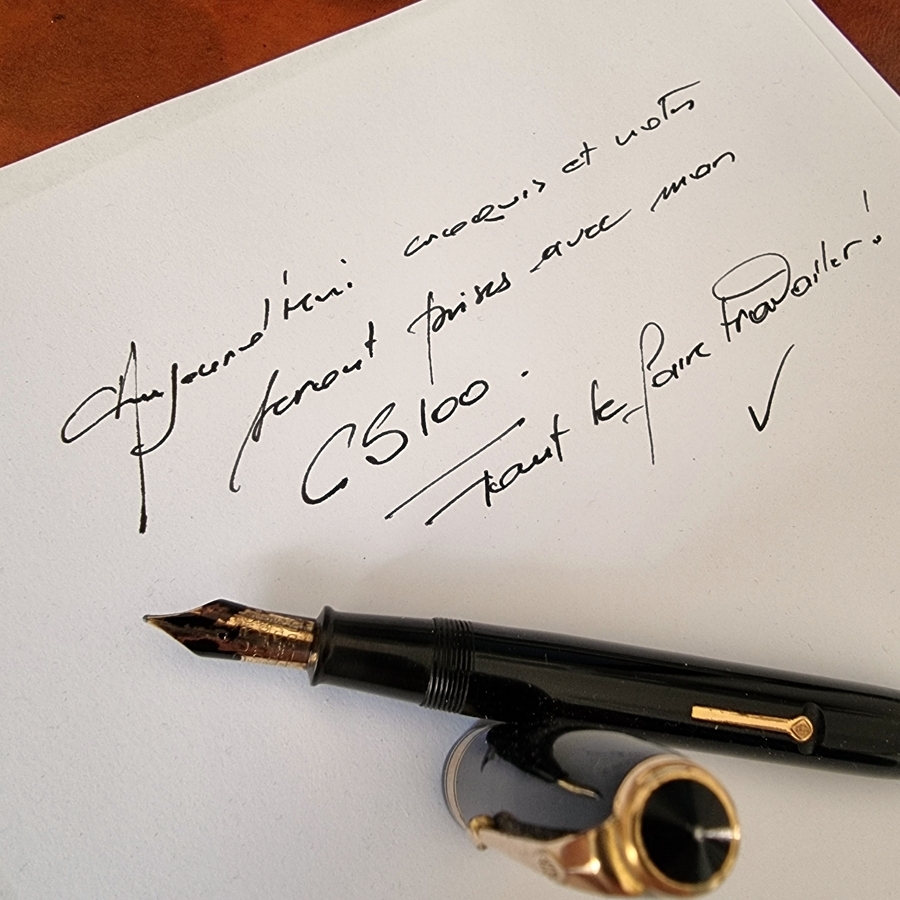 Aujourd'hui croquis et notes
seront prises avec mon
CS100.
Faut le faire travailler!